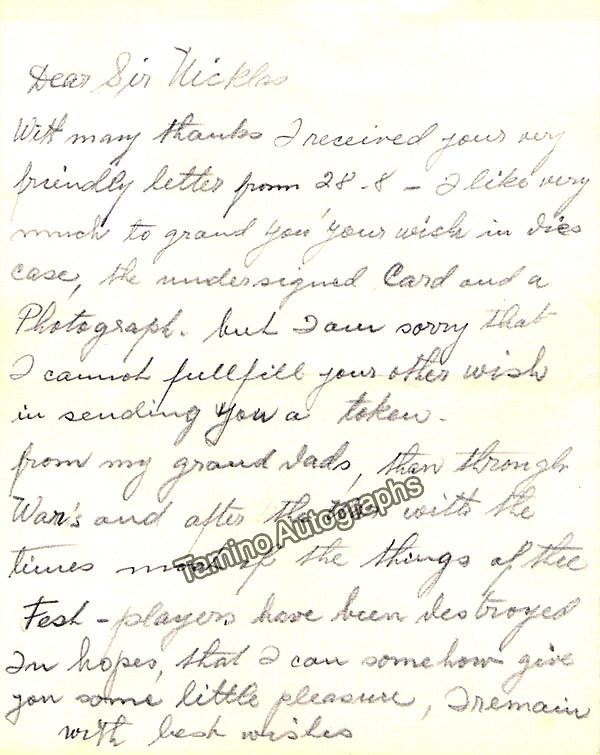 Dear Sir Nicklas
With many thanks I received your very
friendly letter from 28-8 - I like very
much to grand you your wish in dies
case, the undersigned Card and a
Photograph. but I am sorry that
I cannot fullfill your other wish
in sending you a token.
from my grand dads, than through
War's and after the with the
times most of the things of thee
Fest-players have been destroyed
In hopes, that I can somehow give
you some little pleasure, I remain
with best wishes
Tamino Autographs